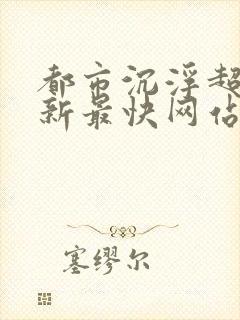 都市沉浮超
新最快网佔
塞缪尔